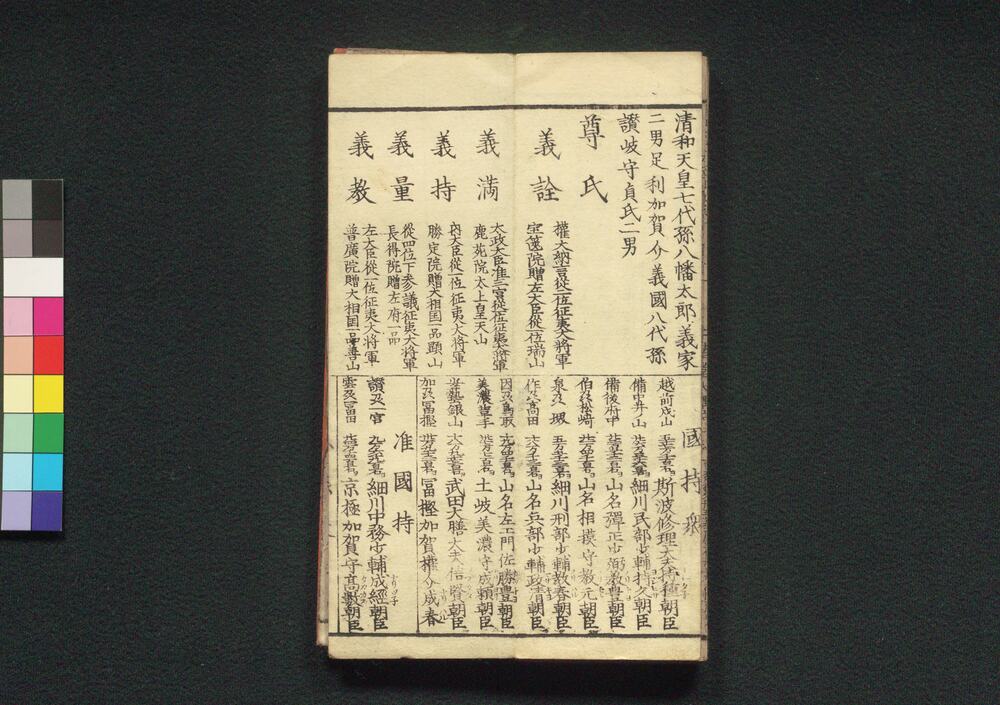 清和天皇七代孫八幡太郎義家
二男足利加賀介義國八代孫
讃岐守貞氏二男
尊氏
義詮
權大納言從一位征夷大將軍
宝篋院贈左大臣從一位瑞山
義満
太政大臣准三宮從一位征夷大將軍
鹿苑院太上皇天山
義持
内大臣從一位征夷大將軍
勝定院贈大相国一品顕山
義量
從四位下参議征夷大將軍
長得院贈左府一品
義教
左大臣從一位征夷大將軍
普廣院贈大相国一品善山
國持衆
越前戌山
斯波修理大夫持種朝臣
備中井山
細川民部少輔持久朝臣
備後府中
山名彈正少弼教豊朝臣
伯州松崎
山名相模守教元朝臣
泉州堺
細川刑部少輔教春朝臣
作州高田
山名兵部少輔政清朝臣
因州鳥取
山名左エ門佐勝豊朝臣
美濃革手
土岐美濃守成頼朝臣
安藝銀山
武田大膳大夫信賢朝臣
加州冨樫
冨樫加賀權介成春
准國持
讃州一宮
細川中務少輔成經朝臣
雲州冨田
京極加賀守高數朝臣